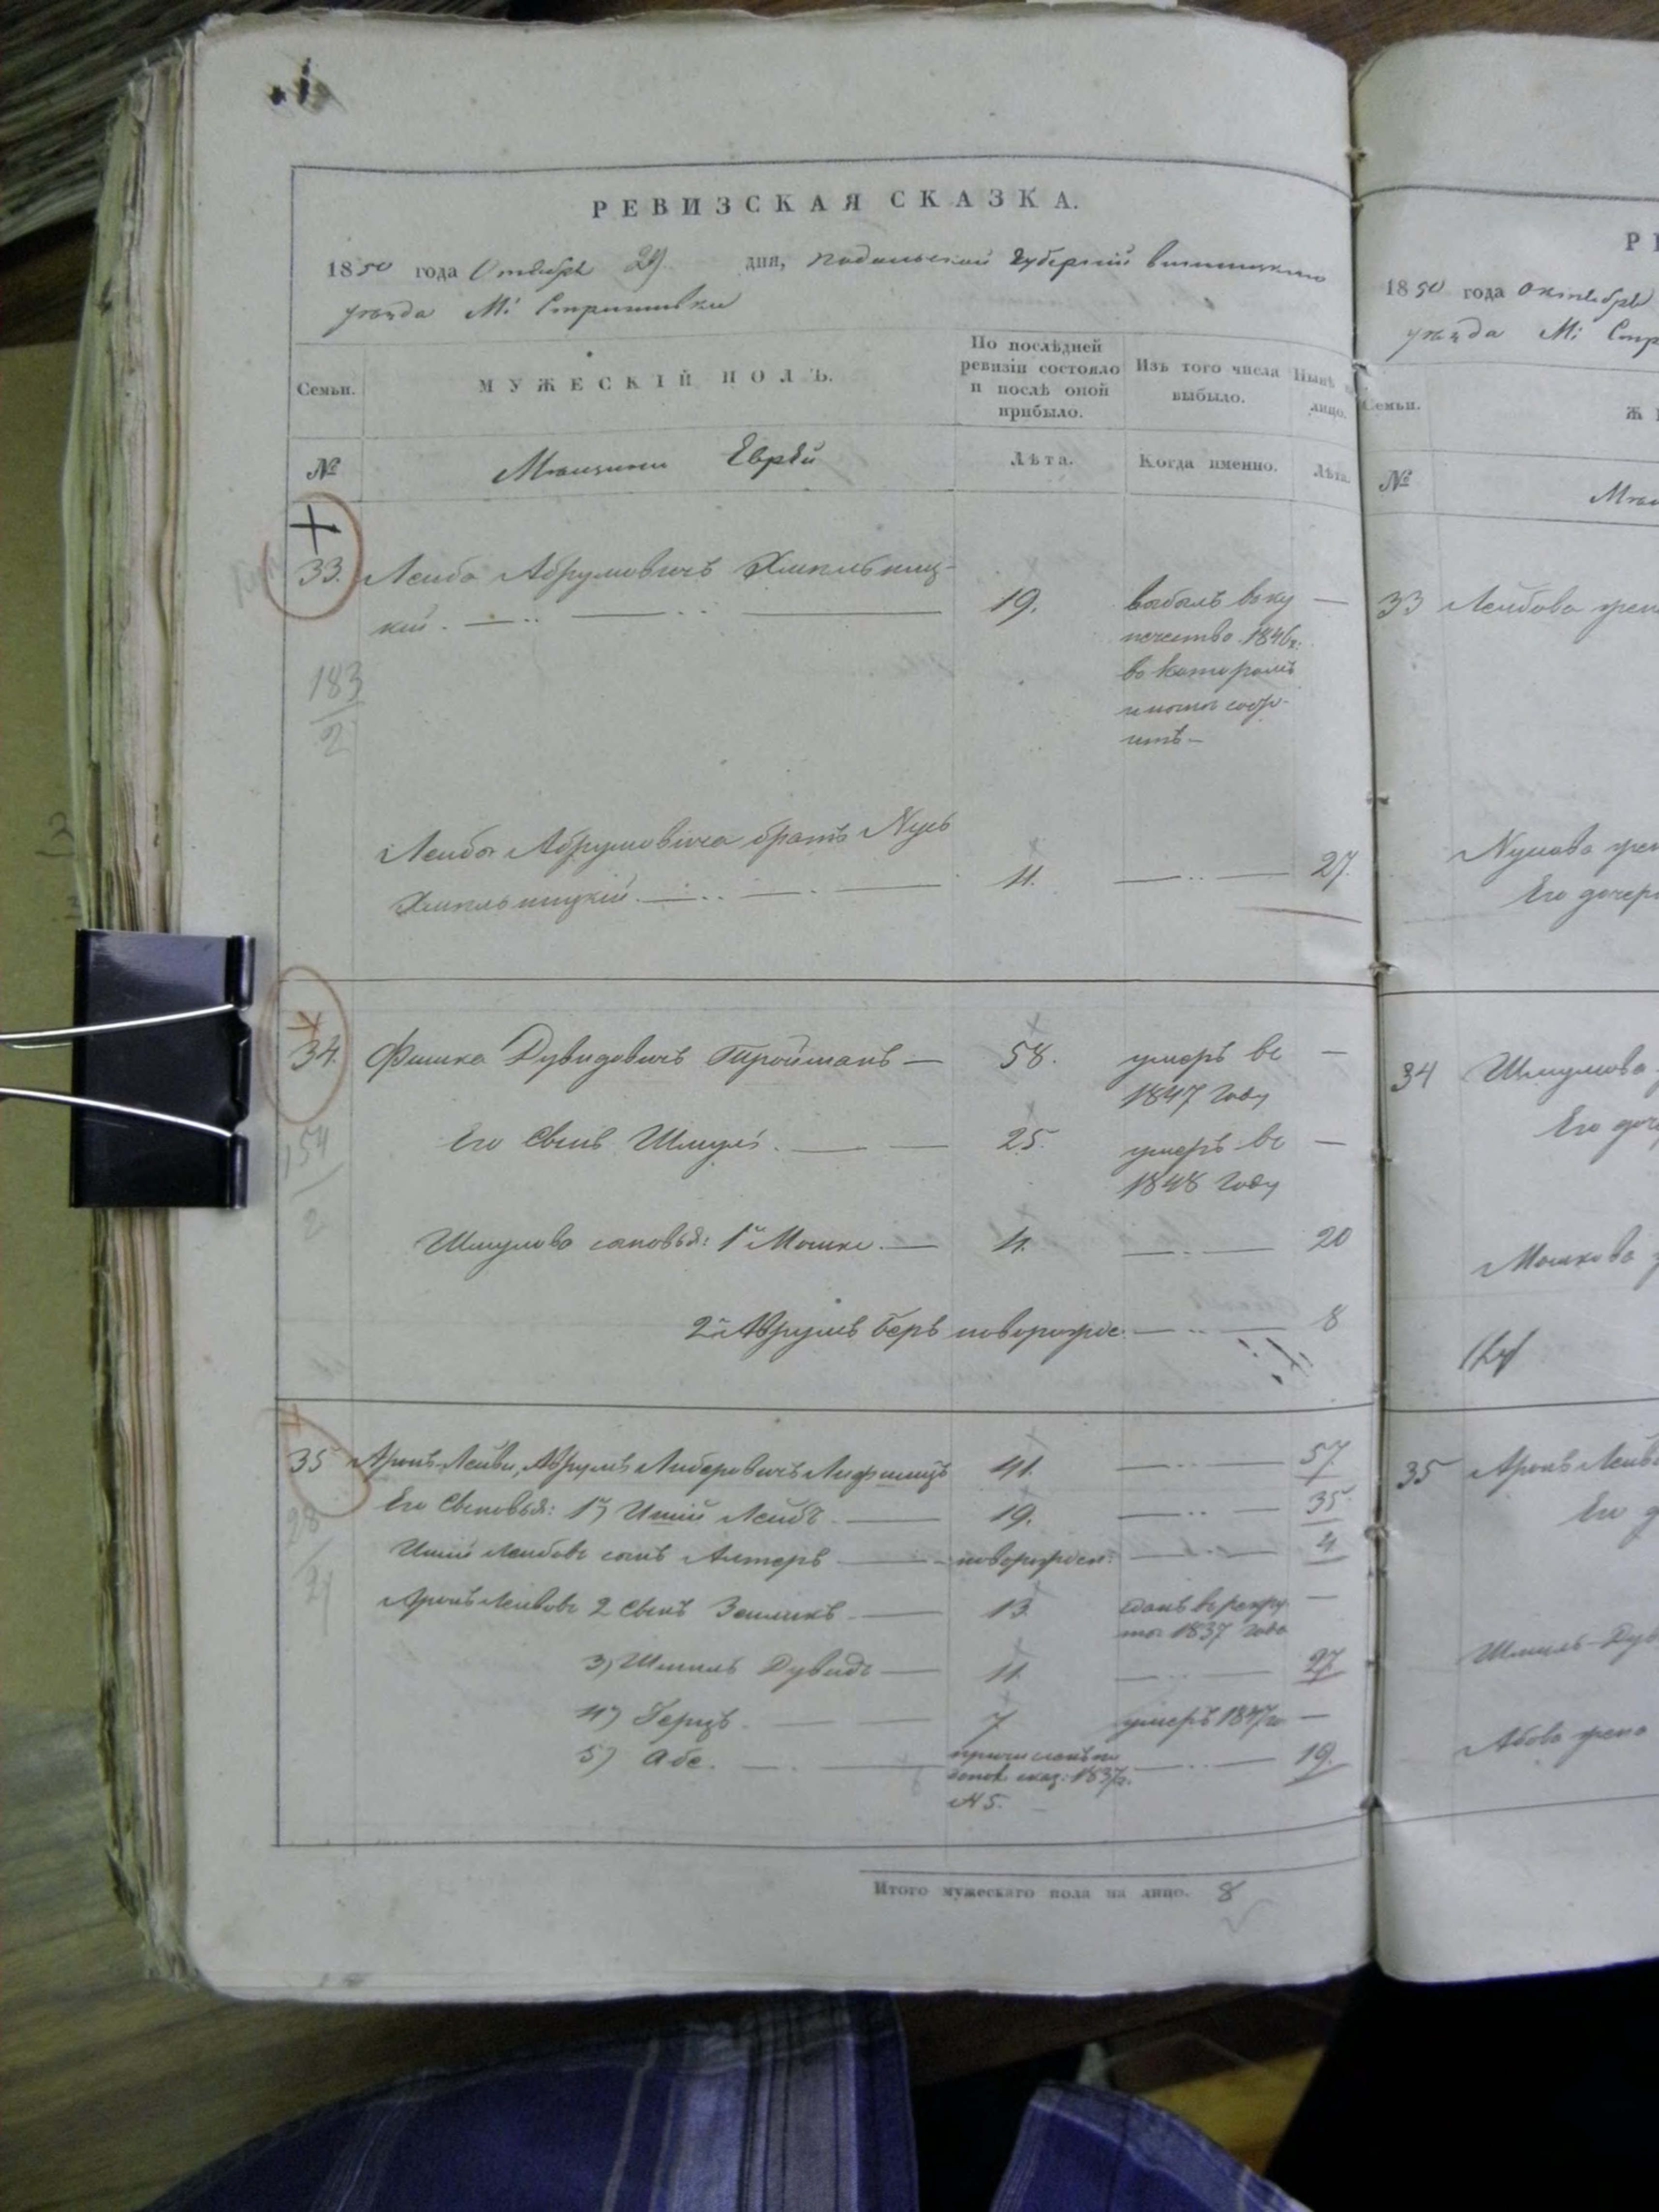 РЕВИЗСКАЯ СКАЗКА.
1850 года Октября 29 дня, Подольской Губернiи Винницкаго
уѣзда М: Стрижавки
Семьи.
МУЖЕСКIЙ ПОЛЪ.
По послѣдней
ревизiи состояло
и послѣ оной
прибыло.
Изъ того числа
выбыло.
Нынѣ
лицо.
№
Мѣщани Еврѣи
Лѣта.
Когда именно.
Лѣта.
33. Лейба Абрумовичъ Хмельниц-
кiй. 19. выбылъ въ ку —
печество 1846г:
въ которомъ
и ныне состо-
итъ —
183
2
Лейбы Абрумовича братъ Нусь
Хмельницкiй. 11. — 27.
34. Фишка Дувидовичъ Тройманъ — 58. умеръ въ —
1847 году
Его сынъ Шмуль. 25. умеръ въ —
1848 году
154
2
Шмулова сыновья: 1й Мошко. — 4. — 20
2й Абрумъ Беръ новорожде. — 8
35 Аронъ-Лейви, Абрумъ Либеровичъ Лифшицъ 41. — 57.
Его сыновья: 1й Лейбъ — 19. — 35.
Лейбовъ сынъ Алтеръ — новорожден: — 4
28
Аронъ Лейвовъ 2 сынъ Зейликъ — 13 сданъ въ рекру —
ты 1837 года
3) Шмиль Дувидъ — 11. — 27.
4) Герцъ. — 7 умеръ 1847го —
5) Абе. — причисленъ по — 19.
допол. сказ: 1837г.
№ 5.
Итого мужескаго пола на лицо. 8
1850 года октября
уѣзда М: Стр
Семьи.
Ж
№
33 Лейбова жен
Нусова жен
Его дочер
34 Шмулова
Его доч
Мошкова
35 Аронъ Лейв
Его д
Шмиль-Дув
Абова жена